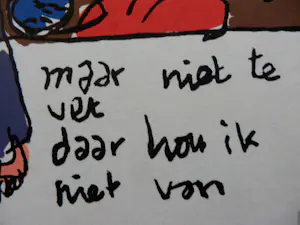 maar niet te
ver
daar hou ik
niet van